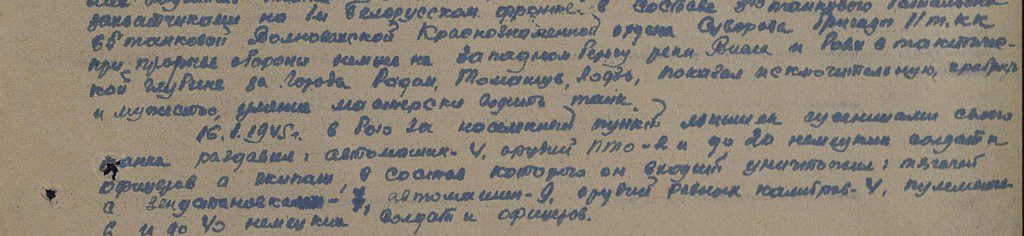 захватчиками на 1м Белорусском фронте в составе танкового батальона
65 танковой Волновахской Краснознаменной ордена Суворова бригады 11 т.к. к
при прорыве обороны немцев на западном берегу реки Висла и боях в тактичес-
кой глубине за города Радом, Томашув, Лодзь, показал исключительную храбрость
и мужество, умение мастерски водить танк.
16.1.1945г. в бою за населенный пункт гусеницами своего
танка раздавил: автомашин - 4, орудий ПТО - 2 и до 20 немецких солдат и
офицеров а экипаж, в состав которого он входит уничтожил: тягачей
с автомашин - 9, орудий разных калибров - 4, пулеметов
6 и до 40 немецких солдат и офицеров.